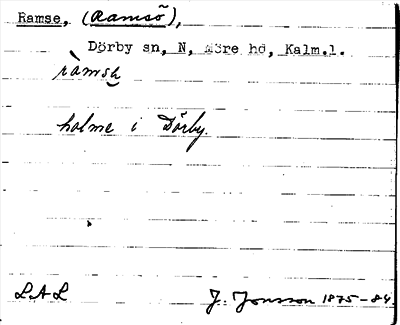 Ramse, (Ramsö),
Dörby sn, N, Möre hd, Kalm.l.
ràmsə
holme i Dörby.
LAL J. Jonsson 1875-84.